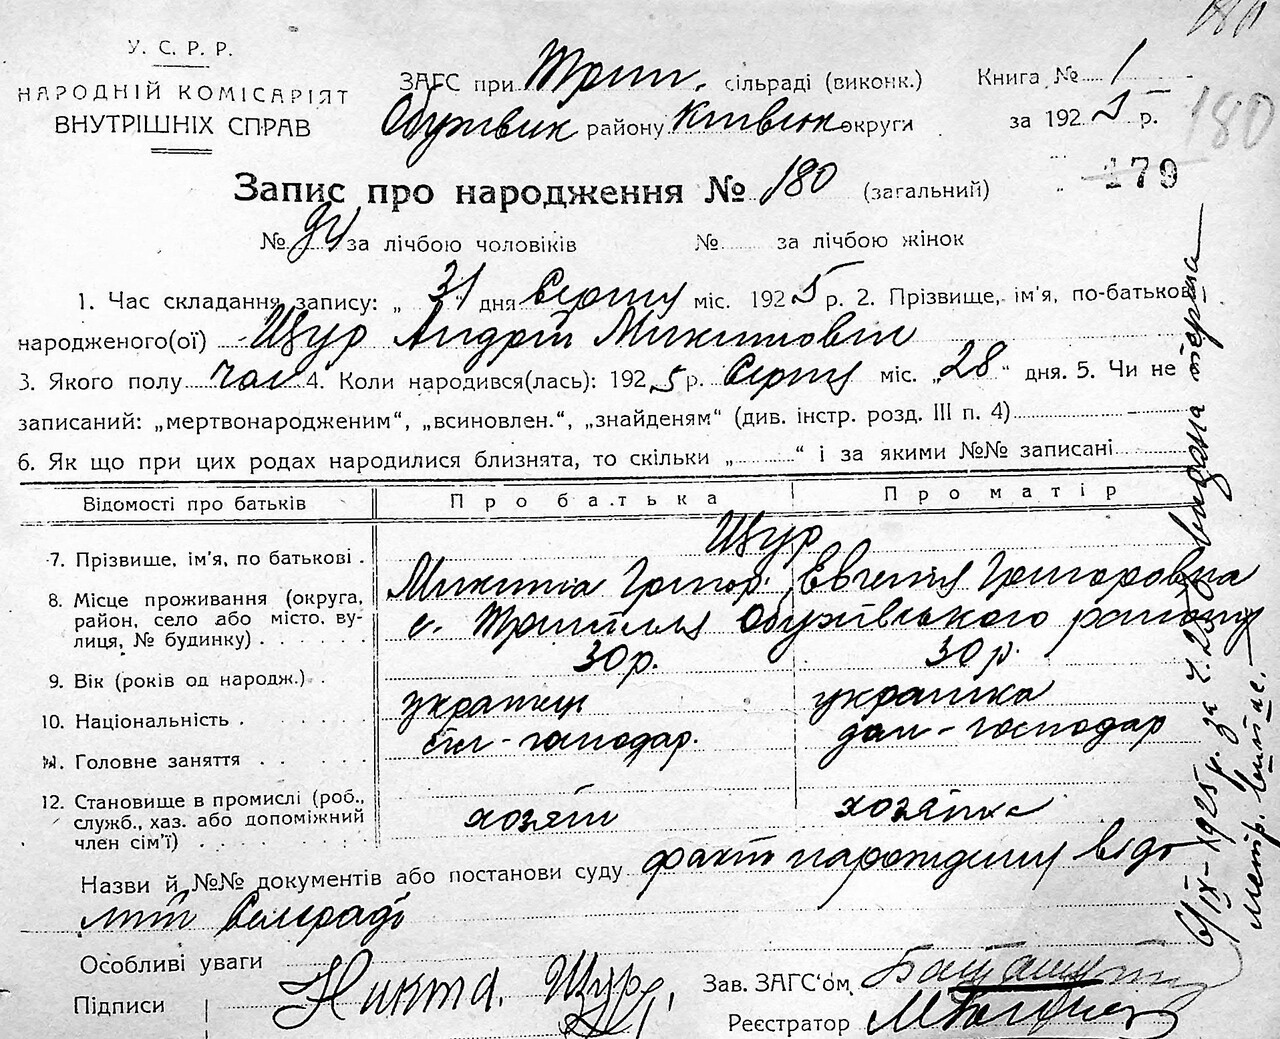 У. С. Р. Р.
НАРОДНІЙ КОМІСАРІЯТ
ВНУТРІШНІХ СПРАВ
ЗАГС при Трип. сільраді (виконк.)
Обухівськ району Київськ округи
Книга № 1
за 1925 р.
180
179
Запис про народження № 180 (загальний)
№ 94 за лічбою чоловіків № за лічбою жінок
1. Час складання запису: „31“ дня Серпня міс. 1925 р. 2. Прізвище, ім'я, по-батькові
народженого(ої) Щур Андрій Микитович
3. Якого полу чол 4. Коли народився(лась): 1925 р. Серпня міс. „28“ дня. 5. Чи не
записаний: „мертвонародженим“, „всиновлен.“, „знайденям“ (див. інстр. розд. III п. 4)
6. Як що при цих родах народилися близнята, то скільки „ “ і за якими №№ записані
Відомості про батьків Про батька Про матір
7. Прізвище, ім'я, по батькові . Щур
Микита Григор. Евгенія Григоровна
8. Місце проживання (округа,
район, село або місто, ву-
лиця, № будинку) . с. Трипілля Обухівського району
9. Вік (років од народж.) . 30 р. 30 р.
10. Національність . українець українка
11. Головне заняття . сіл-господар. дом-господар
12. Становище в промислі (роб.,
служб., хаз. або допоміжний
член сім'ї) . хозяїн хозяйка
Назви й №№ документів або постанови суду факт нарождення відо
мий Сельраді
Особливі уваги
Підписи Никита Щур
Зав. ЗАГС'ом
Реєстратор
6/IX-1925 р. за ч. видана перша
метр. випис.